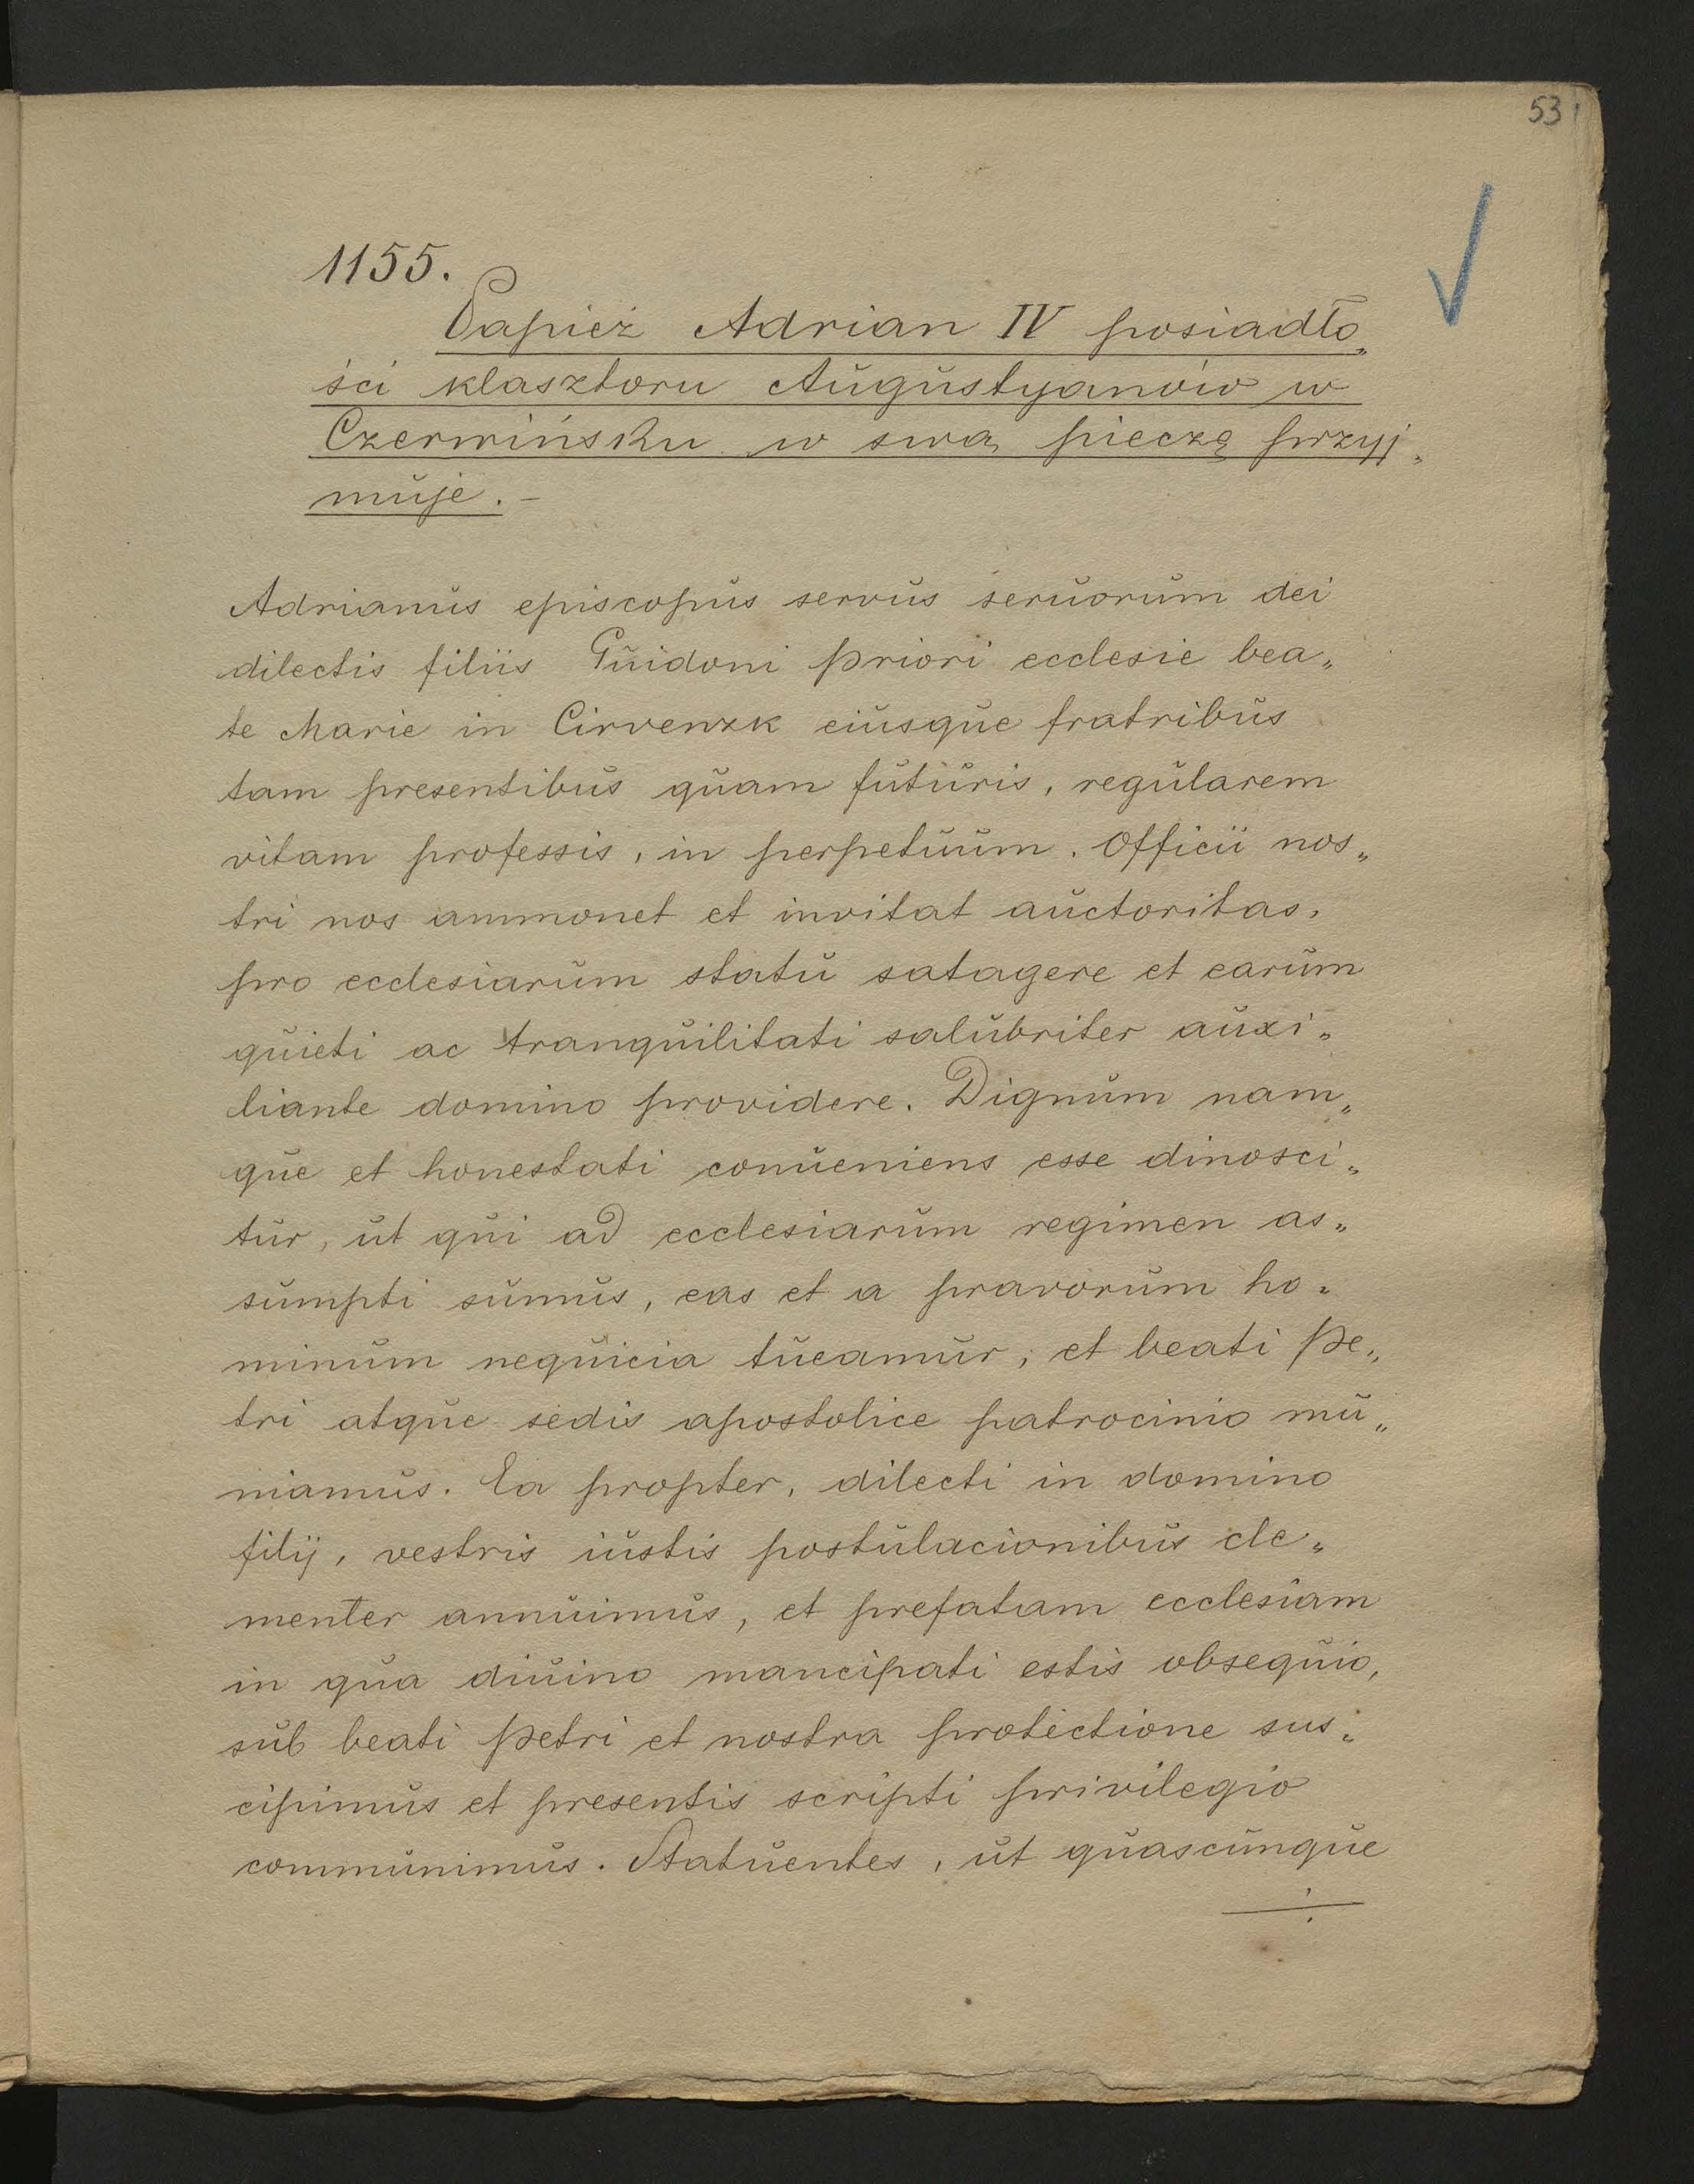 53
1155.
Papież Adrian IV posiadło„
ści klasztoru Augustyanów w
Czerwińsku w swą pieczę przyj„
muje. –
Adrianus episcopus servus seruorum dei
dilectis filiis Guidoni priori ecclesie bea„
te Marie in Cirvenzk eiusque fratribus
tam presentibus quam futuris, regularem
vitam professis, in perpetuum. Officii nos„
tri nos ammonet et invitat auctoritas,
pro ecclesiarum statu satagere et earum
quieti ac tranquilitati salubriter auxi„
liante domino providere. Dignum nam„
que et honestati conueniens esse dinosci„
tur, ut qui ad ecclesiarum regimen as„
sumpti sumus, eas et a pravorum ho„
minum nequicia tueamur, et beati Pe„
tri atque sedis apostolice patrocinio mu„
niamus. Ea propter, dilecti in domino
filij, vestris iustis postulacionibus cle„
menter annuimus, et prefatam ecclesiam
in qua diuino mancipati estis obsequio,
sub beati Petri et nostra protectione sus„
cipimus et presentis scripti privilegio
communimus. Statuentes, ut quascunque